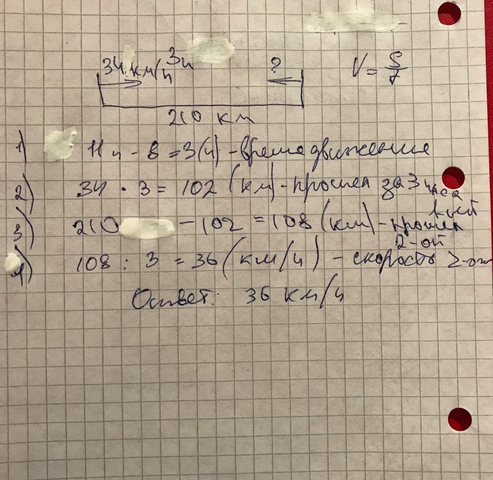 34 км/ч 3ч ? V = S/t
210 км
1) 11ч - 8 = 3(ч) - время движения
2) 34 · 3 = 102 (км) - прошел за 3 часа 1-ый
3) 210 - 102 = 108 (км) - прошел 2-ой
4) 108 : 3 = 36 (км/ч) - скорость 2-ого
Ответ: 36 км/ч